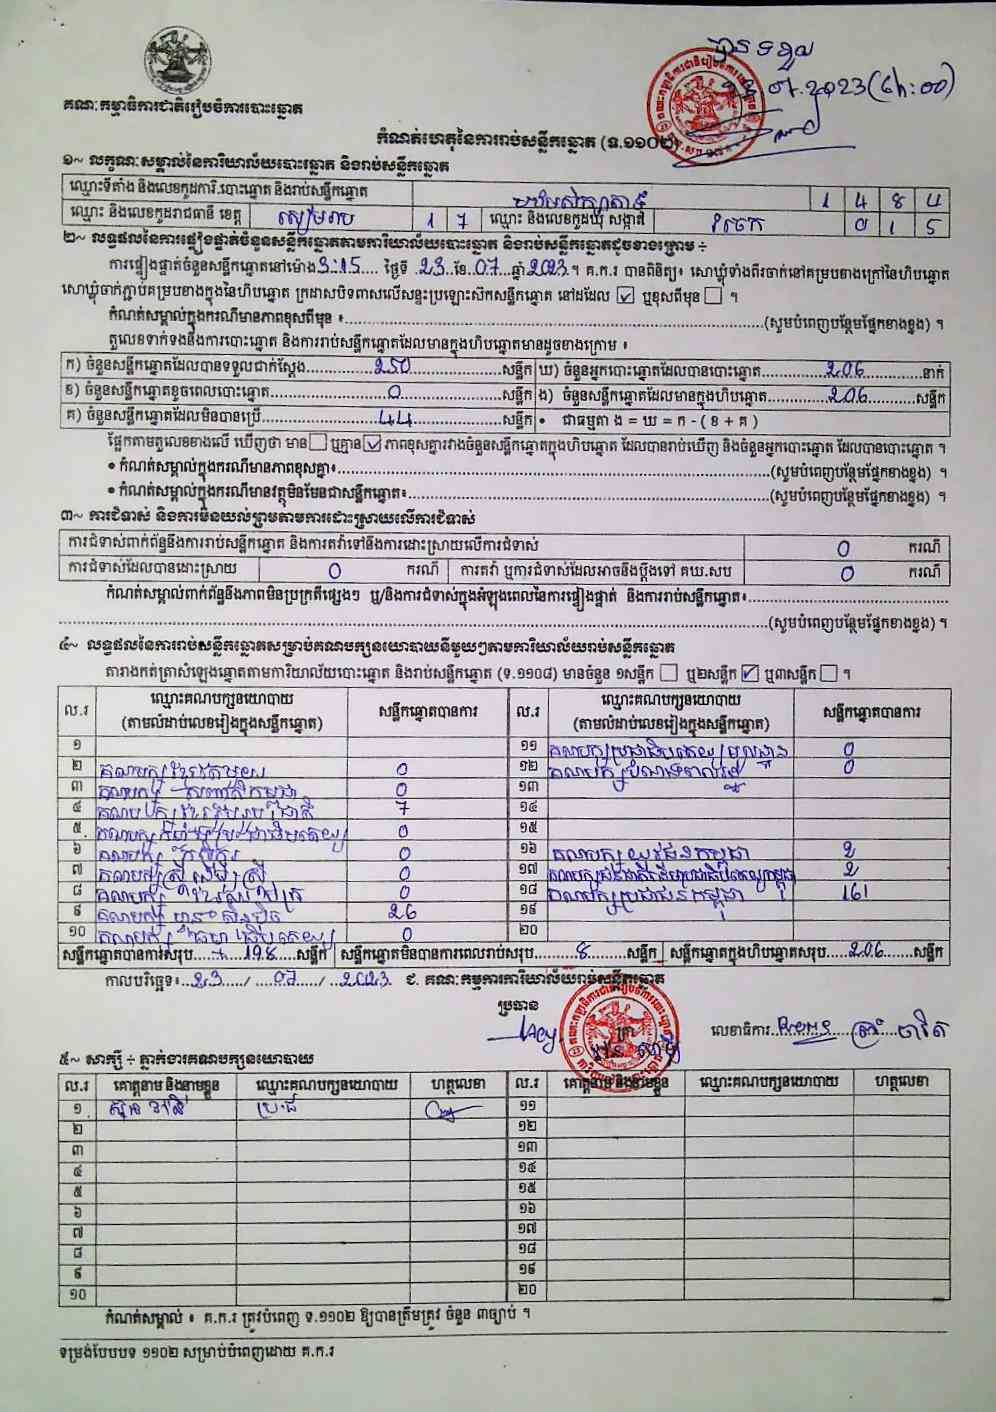 បានទទួល
07.2023(6h:00)
គណៈកម្មាធិការជាតិរៀបចំការបោះឆ្នោត
កំណត់ហេតុនៃការរាប់សន្លឹកឆ្នោត (ទ.១១០២)
១~ លក្ខណៈសម្គាល់នៃការិយាល័យបោះឆ្នោត និងរាប់សន្លឹកឆ្នោត
ឈ្មោះទីតាំង និងលេខកូដការិ.បោះឆ្នោត និងរាប់សន្លឹកឆ្នោត 1 4 8 4
ឈ្មោះ និងលេខកូដរាជធានី ខេត្ត សៀមរាប 1 7 ឈ្មោះ និងលេខកូដឃុំ សង្កាត់ 0 1 5
២~ លទ្ធផលនៃការផ្ទៀងផ្ទាត់ចំនួនសន្លឹកឆ្នោតតាមការិយាល័យបោះឆ្នោត និងរាប់សន្លឹកឆ្នោតដូចខាងក្រោម ÷
ការផ្ទៀងផ្ទាត់ចំនួនសន្លឹកឆ្នោតនៅម៉ោង 3:15 ថ្ងៃទី 23 ខែ 07 ឆ្នាំ 2023 ។ គ.ក.រ បានពិនិត្យ៖ សោឃ្លុំទាំងពីរចាក់នៅគម្របខាងក្រៅនៃហិបឆ្នោត
សោឃ្លុំចាក់ភ្ជាប់គម្របខាងក្នុងនៃហិបឆ្នោត ក្រដាសបិទពាសលើសន្ទះប្រឡោះសឹកសន្លឹកឆ្នោត នៅដដែល ☑ ឬខុសពីមុន ☐ ។
កំណត់សម្គាល់ក្នុងករណីមានភាពខុសពីមុន ៖ (សូមបំពេញបន្ថែមផ្នែកខាងខ្នង) ។
តួលេខទាក់ទងនឹងការបោះឆ្នោត និងការរាប់សន្លឹកឆ្នោតដែលមានក្នុងហិបឆ្នោតមានដូចខាងក្រោម ៖
ក) ចំនួនសន្លឹកឆ្នោតដែលបានទទួលជាក់ស្តែង 250 សន្លឹក ឃ) ចំនួនអ្នកបោះឆ្នោតដែលបានបោះឆ្នោត 206 នាក់
ខ) ចំនួនសន្លឹកឆ្នោតខូចពេលបោះឆ្នោត 0 សន្លឹក ង) ចំនួនសន្លឹកឆ្នោតដែលមានក្នុងហិបឆ្នោត 206 សន្លឹក
គ) ចំនួនសន្លឹកឆ្នោតដែលមិនបានប្រើ 44 សន្លឹក • ជាធម្មតា ង = ឃ = ក - ( ខ + គ )
ផ្អែកតាមតួលេខខាងលើ ឃើញថា មាន ☐ ឬគ្មាន ☑ ភាពខុសគ្នារវាងចំនួនសន្លឹកឆ្នោតក្នុងហិបឆ្នោត ដែលបានរាប់ឃើញ និងចំនួនអ្នកបោះឆ្នោត ដែលបានបោះឆ្នោត ។
• កំណត់សម្គាល់ក្នុងករណីមានភាពខុសគ្នា៖ (សូមបំពេញបន្ថែមផ្នែកខាងខ្នង) ។
• កំណត់សម្គាល់ក្នុងករណីមានវត្ថុមិនមែនជាសន្លឹកឆ្នោត៖ (សូមបំពេញបន្ថែមផ្នែកខាងខ្នង) ។
៣~ ការជំទាស់ និងការមិនយល់ព្រមតាមការដោះស្រាយលើការជំទាស់
ការជំទាស់ពាក់ព័ន្ធនឹងការរាប់សន្លឹកឆ្នោត និងការតវ៉ាទៅនឹងការដោះស្រាយលើការជំទាស់ 0 ករណី
ការជំទាស់ដែលបានដោះស្រាយ 0 ករណី ការតវ៉ា ឬការជំទាស់ដែលអាចនឹងប្តឹងទៅ គឃ.សប 0 ករណី
កំណត់សម្គាល់ពាក់ព័ន្ធនឹងភាពមិនប្រក្រតីផ្សេងៗ ឬ/និងការជំទាស់ក្នុងអំឡុងពេលនៃការផ្ទៀងផ្ទាត់ និងការរាប់សន្លឹកឆ្នោត៖
(សូមបំពេញបន្ថែមផ្នែកខាងខ្នង) ។
៤~ លទ្ធផលនៃការរាប់សន្លឹកឆ្នោតសម្រាប់គណបក្សនយោបាយនីមួយៗតាមការិយាល័យរាប់សន្លឹកឆ្នោត
តារាងកត់ត្រាសំឡេងឆ្នោតតាមការិយាល័យបោះឆ្នោត និងរាប់សន្លឹកឆ្នោត (ទ.១១០៨) មានចំនួន ១សន្លឹក ☐ ឬ២សន្លឹក ☑ ឬ៣សន្លឹក ☐ ។
ល.រ ឈ្មោះគណបក្សនយោបាយ (តាមលំដាប់លេខរៀងក្នុងសន្លឹកឆ្នោត) សន្លឹកឆ្នោតបានការ ល.រ ឈ្មោះគណបក្សនយោបាយ (តាមលំដាប់លេខរៀងក្នុងសន្លឹកឆ្នោត) សន្លឹកឆ្នោតបានការ
១ ១១ គណបក្សប្រជាធិបតេយ្យមូលដ្ឋាន 0
២ គណបក្សខ្មែររួបរួម 0 ១២ គណបក្ស 0
៣ គណបក្ស កម្ពុជា 0 ១៣
៤ គណបក្ស ជាតិ 7 ១៤
៥ គណបក្ស ប្រជាធិបតេយ្យ 0 ១៥
៦ គណបក្ស កសិករ 0 ១៦ គណបក្សយុវជនកម្ពុជា 2
៧ គណបក្សស្ត្រីដើម្បីស្ត្រី 0 ១៧ គណបក្ស 2
៨ គណបក្ស 0 ១៨ គណបក្សប្រជាជនកម្ពុជា 161
៩ គណបក្ស ហ៊្វុនស៊ិនប៉ិច 26 ១៩
១០ គណបក្ស ធិបតេយ្យ 0 ២០
សន្លឹកឆ្នោតបានការសរុប 198 សន្លឹក សន្លឹកឆ្នោតមិនបានការពេលរាប់សរុប 8 សន្លឹក សន្លឹកឆ្នោតក្នុងហិបឆ្នោតសរុប 206 សន្លឹក
កាលបរិច្ឆេទ៖ 23 / 07 / 2023 ជ. គណៈកម្មការការិយាល័យរាប់សន្លឹកឆ្នោត
ប្រធាន
លេខាធិការ
៥~ សាក្សី ÷ ភ្នាក់ងារគណបក្សនយោបាយ
ល.រ គោត្តនាម និងនាមខ្លួន ឈ្មោះគណបក្សនយោបាយ ហត្ថលេខា ល.រ គោត្តនាម និងនាមខ្លួន ឈ្មោះគណបក្សនយោបាយ ហត្ថលេខា
១ ប្រ.ជ ១១
២ ១២
៣ ១៣
៤ ១៤
៥ ១៥
៦ ១៦
៧ ១៧
៨ ១៨
៩ ១៩
១០ ២០
កំណត់សម្គាល់ ៖ គ.ក.រ ត្រូវបំពេញ ទ.១១០២ ឱ្យបានត្រឹមត្រូវ ចំនួន ៣ច្បាប់ ។
ទម្រង់បែបបទ ១១០២ សម្រាប់បំពេញដោយ គ.ក.រ